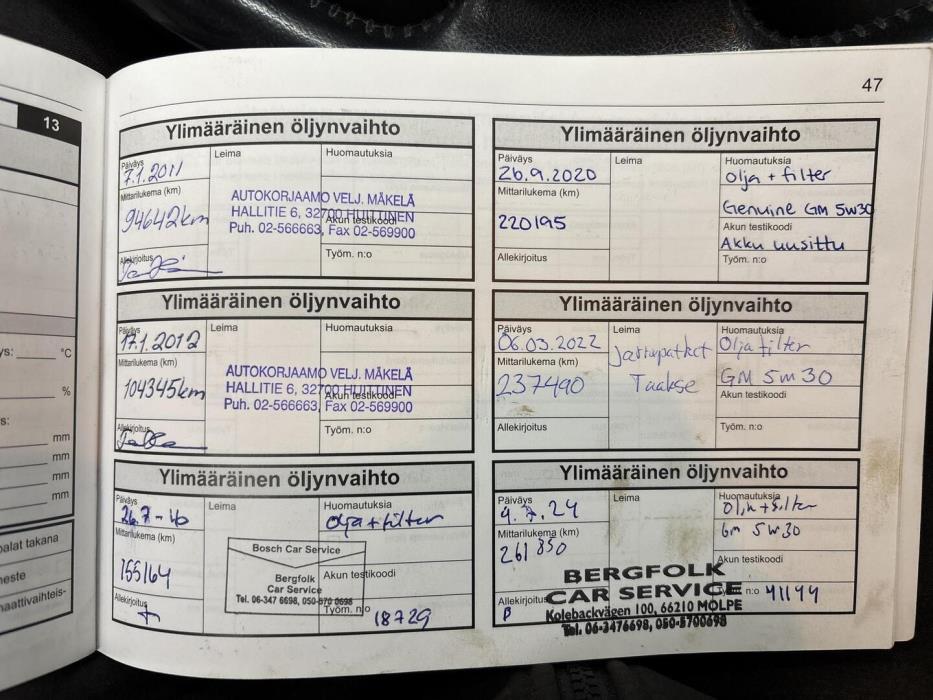 47
13
ys: °C
%
s:
mm
mm
mm
mm
palat takana
neste
naattivaihteis-
Ylimääräinen öljynvaihto
Päiväys
7.1.2011
Leima
Huomautuksia
Mittarilukema (km)
94642km
AUTOKORJAAMO VELJ. MÄKELÄ
HALLITIE 6, 32700 HUITTINEN
Puh. 02-566663, Fax 02-569900
Akun testikoodi
Allekirjoitus
Työm. n:o
Ylimääräinen öljynvaihto
Päiväys
17.1.2012
Leima
Huomautuksia
Mittarilukema (km)
104345km
AUTOKORJAAMO VELJ. MÄKELÄ
HALLITIE 6, 32700 HUITTINEN
Puh. 02-566663, Fax 02-569900
Akun testikoodi
Allekirjoitus
Työm. n:o
Ylimääräinen öljynvaihto
Päiväys
26.7-16
Leima
Huomautuksia
olja + filter
Mittarilukema (km)
155164
Bosch Car Service
Bergfolk
Car Service
Tel. 06-347 6698, 050-570 0698
Akun testikoodi
Allekirjoitus
Työm. n:o
18729
Ylimääräinen öljynvaihto
Päiväys
26.9.2020
Leima
Huomautuksia
Olja + filter
Genuine GM 5w30
Mittarilukema (km)
220195
Akun testikoodi
Akku uusittu
Allekirjoitus
Työm. n:o
Ylimääräinen öljynvaihto
Päiväys
06.03.2022
Leima
Jarrupatket
Taakse
Huomautuksia
Olja filter
GM 5w30
Mittarilukema (km)
237490
Akun testikoodi
Allekirjoitus
Työm. n:o
Ylimääräinen öljynvaihto
Päiväys
4.7.24
Leima
Huomautuksia
Gm 5w30
Mittarilukema (km)
261850
Akun testikoodi
BERGFOLK
CAR SERVICE
Kolebackvägen 100, 66210 MOLPE
Tel. 06-3476698, 050-5700698
Allekirjoitus
Työm. n:o 41194